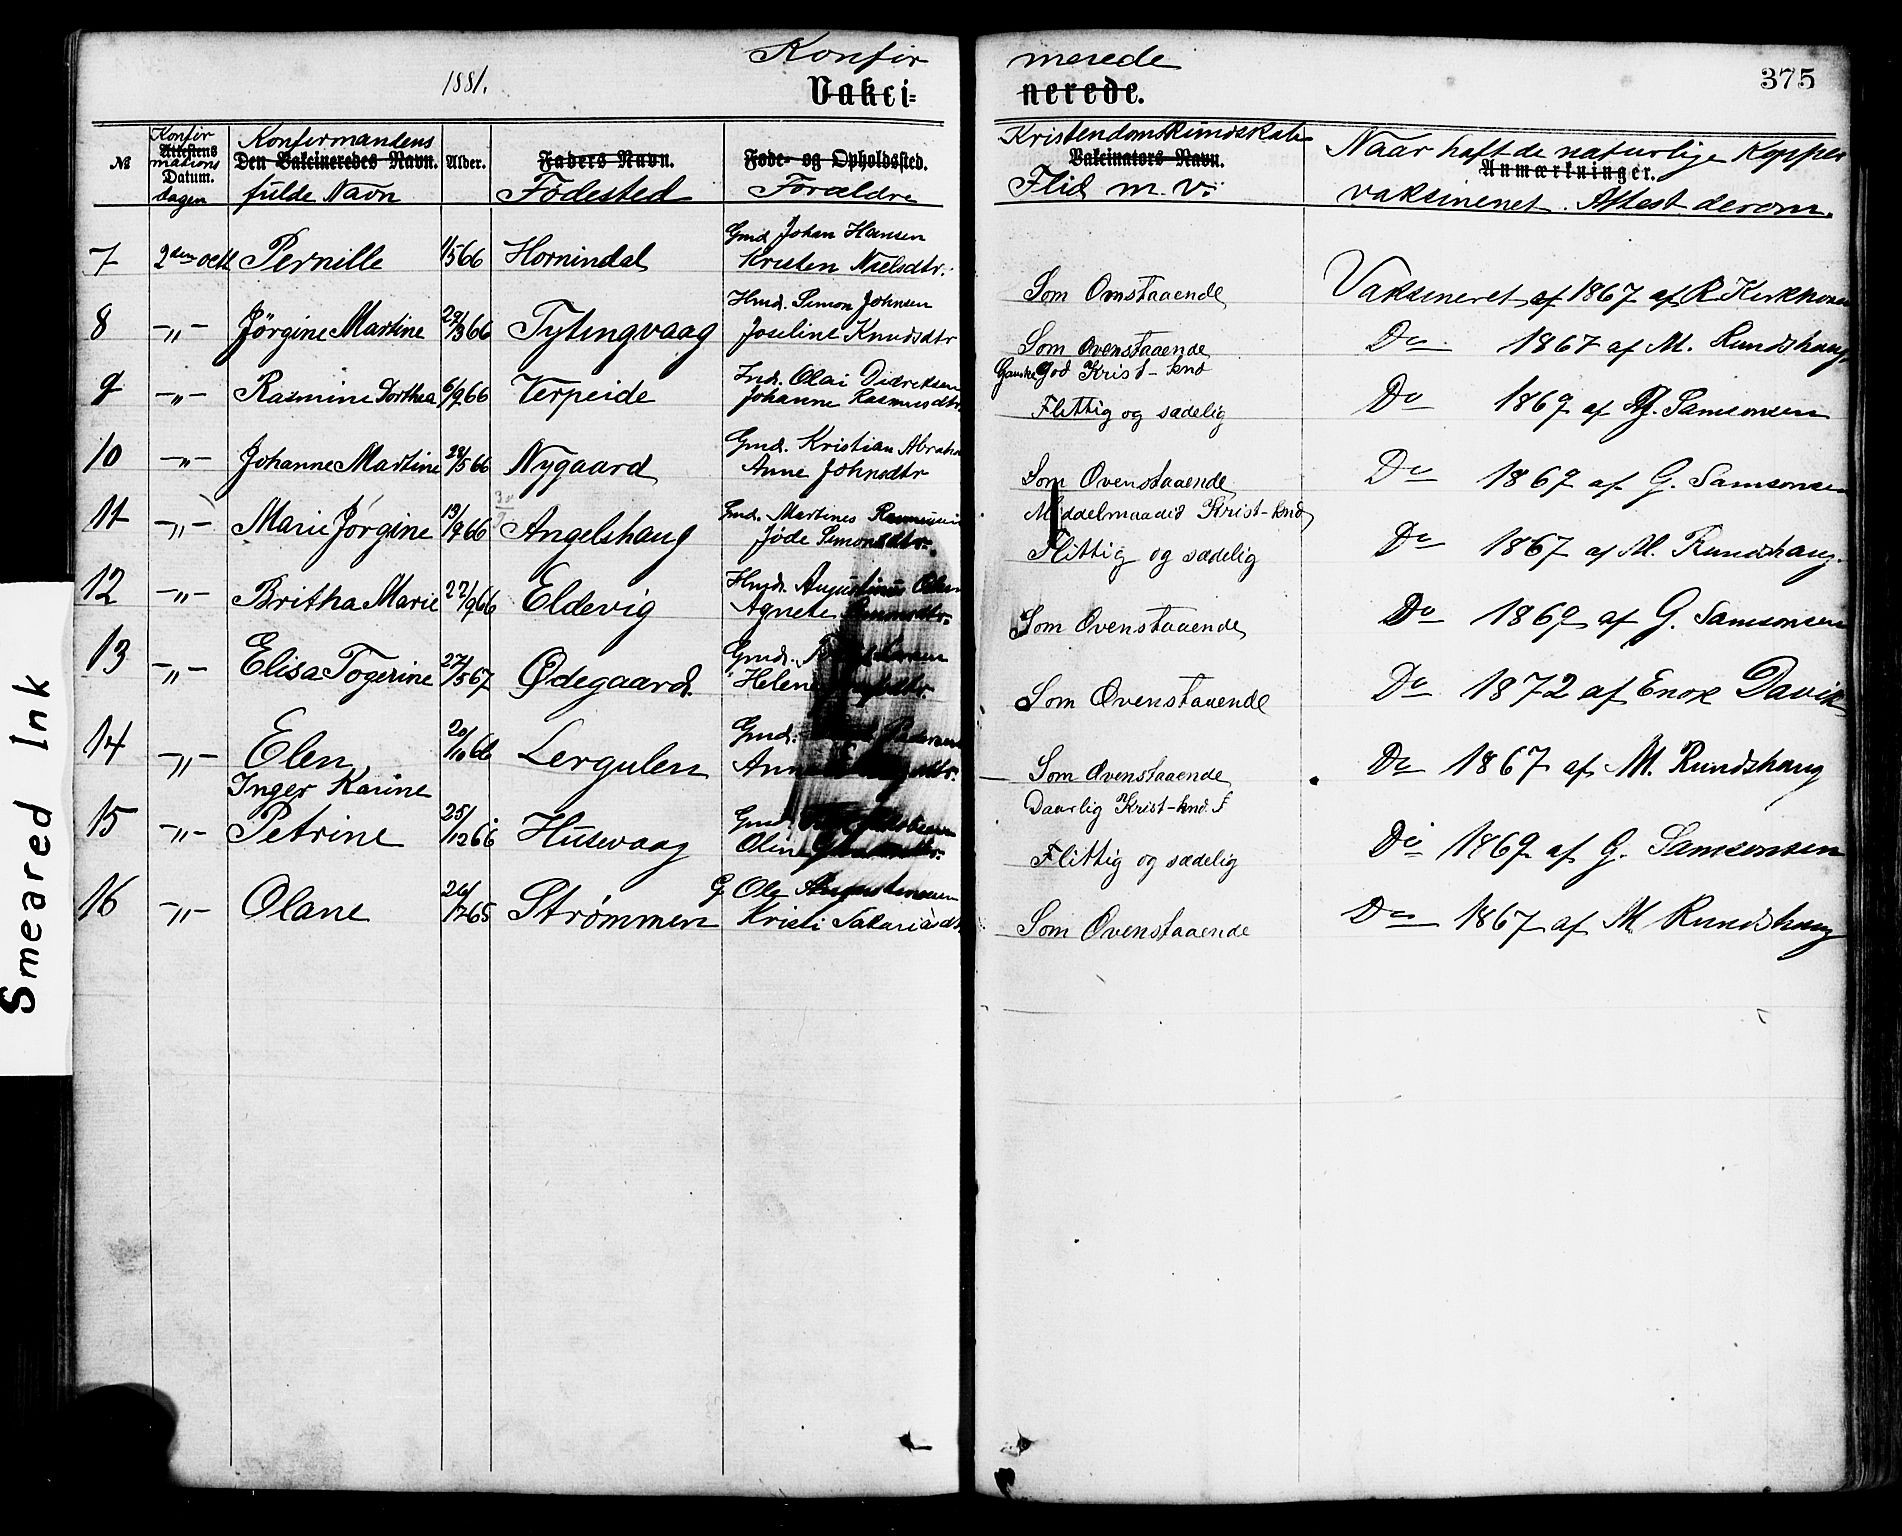 Konfir merede
1881.
Vakci= nerede.
375
Konfir
Attestens
mations
Datum.
dagen
№
Konfirmandens
Den Vakcineredes Navn.
fulde Navn
Alder.
Faders Navn.
Födested
Føde- og Opholdssted.
Forældre
Kristendomskundskab
Vakcinators Navn.
Flid m. v.
Naar haft de naturlige Kopper
Anmærkninger.
vaksineret. Attest derom.
Gmd Johan Hansen
7 2den octb Pernille 1/5 66 Hornindal Kristen Nielsdtr.
Som Omstaaende Vaksineret af 1867 af R Kirkhorn
Hmd. Simon Johnsen
8 -„- Jørgine Martine 29/3 66 Tytingvaag Joseline Knudsdtr
Som Ovenstaaende Do 1867 af M. Rundshaug
Ind. Olai Didreksen Ganske God Krist-knd
9 -„- Rasmine Dorthea 6/9 66 Verpeide Johanne Rasmusdtr.
Flittig og sædelig Do 1869 af G. Samsonsen
Gmd. Kristian Abraha
10 -„- Johanne Martine 28/5 66 Nygaard Anne Johnsdtr
Som Ovenstaaende Do 1869 af G. Samsonsen
Gmd. Martines Middelmaadid Krist-knd
11 -„- Marie Jørgine 13/9 66 Angelshaug Jøde Simonsdtr.
Flittig og sædelig Do 1867 af M. Rundshaug.
Hmd. Augustinus Olsen
12 -„- Britha Marie 22/9 66 Eldevig Agnete
Som Ovenstaaende Do 1869 af G. Samsonsen
Gmd.
13 -„- Elisa Togerine 27/5 67 Ødegaard Helene
Som Ovenstaaende Do 1872 af Enok Davik
Gmd. Pedersen
14 -„- Elen 20/10 66 Lergulen Anne
Som Ovenstaaende Do 1867 af M. Rundshaug
Inger Karine Gmd. Daarlig Krist-knd.
15 -„- Petrine 25/12 66 Husevaag Oline
Flittig og sædelig Do 1869 af G. Samsonsen
G Ole Augustinussen
16 -„- Olane 26/12 65 Strømmen Kristi Sakariasdt
Som Ovenstaaende Do 1867 af M Rundshaug
Smeared Ink